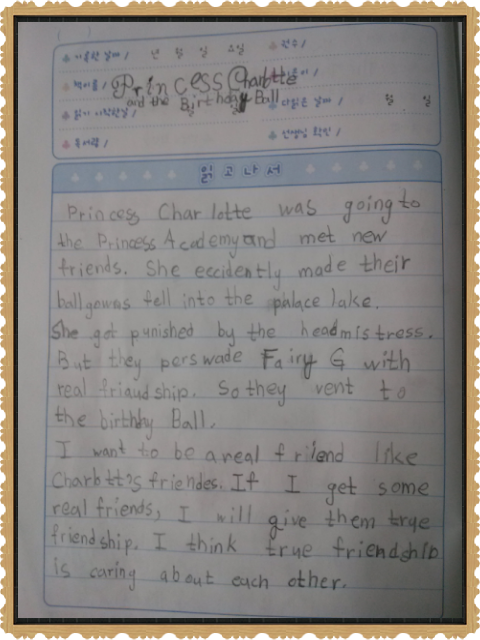 기록한 날짜 / 년 월 일 요일
권수 /
책이름 /
Princess Charlotte
and the Birthday Ball
읽기 시작한 날 / 월 일
다 읽은 날짜 / 월 일
선생님 확인 /
읽고나서
Princess Charlotte was going to
the Princess Academy and met new
friends. She eccidently made their
ballgowns fell into the palace lake.
She got punished by the headmistress.
But they perswade Fairy G with
real friaudship. So they vent to
the birthby Ball.
I want to be a real friend like
Charlotte's friendes. If I get some
real friends, I will give them true
friendship. I think true friendship
is caring about each other.